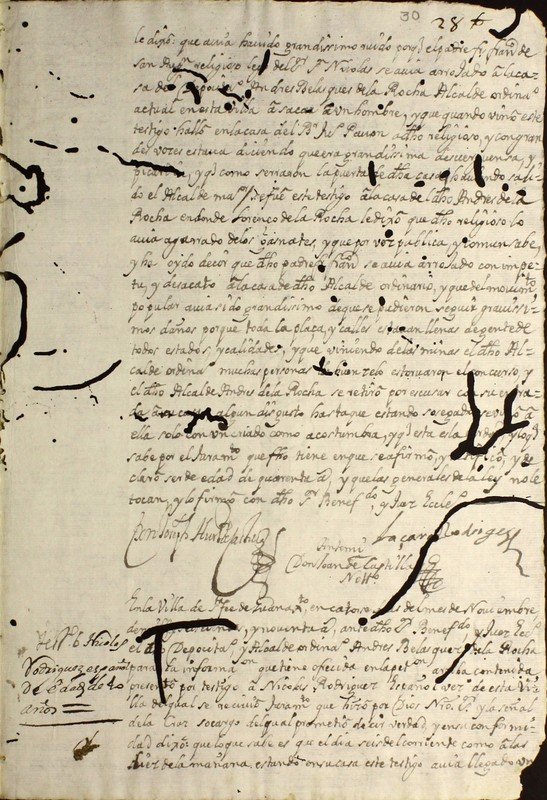 30 28
le dixo: que avia havido grandissimo ruido porq el padre fr. fran.co de
san religioso lego del S.r S. Nicolas se avia arrojado a la ca-
sa del Andres Belasques de la Rocha Alcalde ordin.o
actual en esta villa a sacar a un hombre, y que quando vino este
testigo hallo en la casa del B.r Pavon a dho religioso, y con gran
des voces estava diciendo que era grandissima desverguensa, y
picardia, y q como serraron la puerta de dha casa haviendo sali-
do el Alcalde fue este testigo a la casa del dho Andres de la
Rocha en donde Lorenco de la Rocha le dixo que dho religioso lo
avia agarrado de los gasnates, y que por voz publica, y comun sabe
y ha oydo decir que dho padre fr. fran.co se avia arrojado con impe-
tu, y desacato a la casa de dho Alcalde ordinario, y que del movim.to
popular avia sido grandissimo de que se pudieron seguir gravissi-
mos daños porque toda la plaza, y calles estavan llenas de gente de
todos estados, y calidades, y que viniendo de las minas el dho Al-
calde ordin.o muchas personas quen selo estorvaron el concurso, y
el dho Alcalde Andres de la Rocha se retiro por escusar
algun disgusto hasta que estando sosegado se volvio a
ella solo con un criado como acostumbra, y q esta es la verdad y lo q
sabe por el Juram.to que fho tiene en que se afirmo, y ratifico, y de-
claro ser de edad de quarenta a.s, y que las generales de la ley no le
tocan, y lo firmo con dho S.r Benef.do, y Juez Ecle.co
Don Joseph Hurtado Lacaro Rodrigez
Ante mi
Don Joan de Castilla
Not.o
En la Villa de S.ta fee de Guanax.to, en catorse dias del mes de Noviembre
de mill y noventa a.s, ante dho S.r Benef.do, y Juez Ecc.co
el dho Deposit.o, y Alcalde ordin.o Andres Belasquez de la Rocha
para la informa.on que tiene ofrecida en la pet.on arriba contenida
presento por testigo a Nicolas Rodriguez Español vez.o de esta Vi-
lla del qual se recivio Juram.to que hizo por Dios Nro. S.r y la señal
de la Cruz so cargo del qual prometio decir verdad, y en su conformi-
dad dixo: que lo que sabe es que el dia seis del corriente como a las
diez de la mañana estando en su casa este testigo avia llegado un
Test.o 6 Nicolas
Rodriguez español
De edad de 40
años